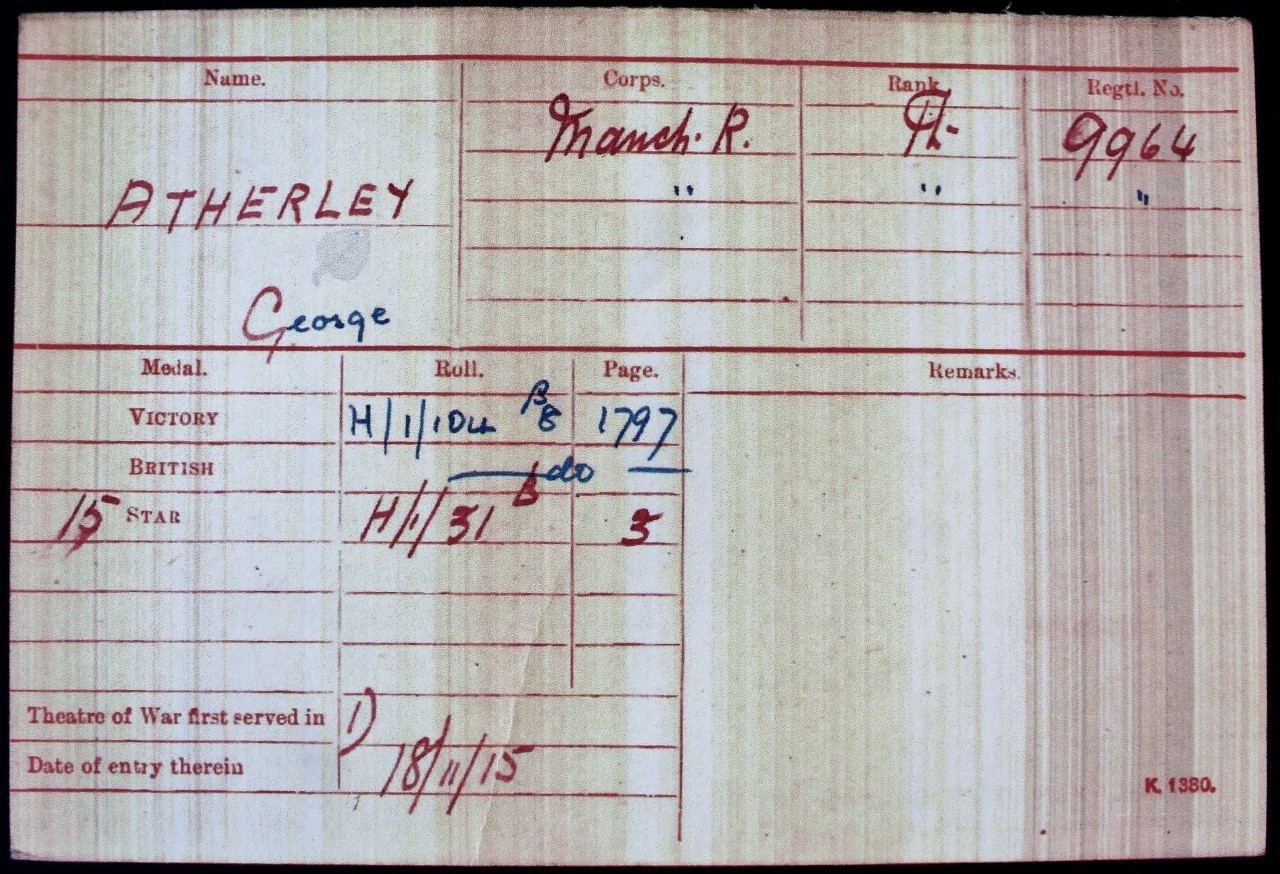 Name. Corps. Rank Regtl. No.
Manch. R. Pte 9964
ATHERLEY " " "
George
Medal. Roll. Page. Remarks.
VICTORY H/1/1D4 B8 1797
BRITISH —do —
15 STAR H/1/31 B 3
Theatre of War first served in 1)
Date of entry therein 18/11/15
K. 1380.